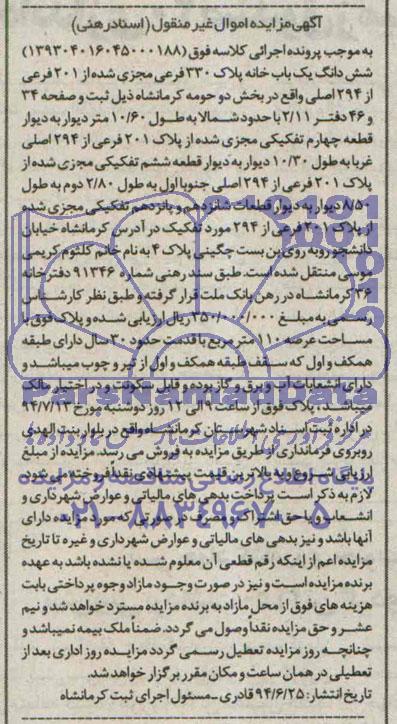 آگهی مزایده اموال غیر منقول (اسناد رهنی)
به موجب پرونده اجرائی کلاسه فوق (۱۳۹۳۰۴۰۱۶۰۴۵۰۰۰۱۸۸)
شش دانگ یک باب خانه پلاک ۳۳۰ فرعی مجزی شده از ۲۰۱ فرعی
از ۲۹۴ اصلی واقع در بخش دو حومه کرمانشاه ذیل ثبت و صفحه ۳۴
و ۴۶ دفتر ۲/۱۱ با حدود شمالا به طول ۱۰/۶۰ متر دیوار به دیوار
قطعه چهارم تفکیکی مجزی شده از پلاک ۲۰۱ فرعی از ۲۹۴ اصلی
غربا به طول ۱۰/۳۰ دیوار به دیوار قطعه ششم تفکیکی مجزی شده از
پلاک ۲۰۱ فرعی از ۲۹۴ اصلی جنوبا اول به طول ۲/۸۰ دوم به طول
۸/۵۰ دیوار به دیوار قطعات شانزدهم و پانزدهم تفکیکی مجزی شده
از پلاک ۲۰۱ فرعی از ۲۹۴ مورد تفکیک در آدرس کرمانشاه خیابان
دانشجو روبه روی بن بست چگینی پلاک ۴ به نام خانم کلثوم کریمی
موسی منتقل شده است. طبق سند رهنی شماره ۹۱۳۴۶ دفترخانه
۳۶ کرمانشاه در رهن بانک ملت قرار گرفته و طبق نظر کارشناس
رسمی به مبلغ ۳۵۰/۰۰۰/۰۰۰ ریال ارزیابی شده و پلاک فوق با
مساحت عرصه ۱۱۰ متر مربع با قدمت حدود ۳۰ سال دارای طبقه
همکف و اول که سقف طبقه همکف و اول از تیر و چوب میباشد و
دارای انشعابات آب و برق و گاز بوده و قابل سکونت و در اختیار مالک
میباشد، پلاک فوق از ساعت ۹ الی ۱۲ روز دوشنبه مورخ ۹۴/۷/۱۳
در اداره ثبت اسناد شهرستان کرمانشاه واقع در بلوار بنت الهدی
روبروی فرمانداری از طریق مزایده به فروش می رسد. مزایده از مبلغ
ارزیابی شروع و به بالاترین قیمت پیشنهادی نقدا فروخته می شود
لازم به ذکر است پرداخت بدهی های مالیاتی و عوارض شهرداری و
انشعاب و یا حق اشتراک و مصرف در صورتی که مورد مزایده دارای
آنها باشد و نیز بدهی های مالیاتی و عوارض شهرداری و غیره تا تاریخ
مزایده اعم از اینکه رقم قطعی آن معلوم شده یا نشده باشد به عهده
برنده مزایده است و نیز در صورت وجود مازاد وجوه پرداختی بابت
هزینه های فوق از محل مازاد به برنده مزایده مسترد خواهد شد و نیم
عشر و حق مزایده نقدا وصول می گردد. ضمناً ملک بیمه نمیباشد و
چنانچه روز مزایده تعطیل رسمی گردد مزایده روز اداری بعد از
تعطیلی در همان ساعت و مکان مقرر برگزار خواهد شد.
تاریخ انتشار: ۹۴/۶/۲۵ قادری - مسئول اجرای ثبت کرمانشاه
ParsNamadData
۰۲۱-۸۸۳۴۹۶۷۰-۵